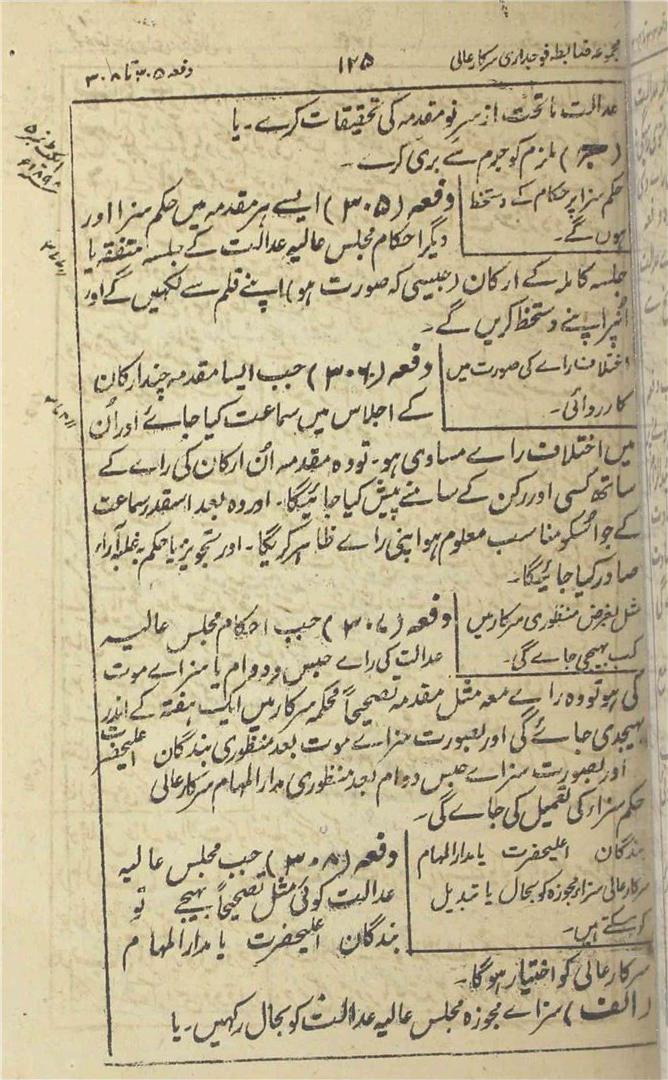 مجموعہ ضابطہ فوجداری سرکارعالی
۱۲۵
دفعہ ۳۰۵ تا ۳۰۸
عدالت ماتحت ازسرنو مقدمہ کی تحقیقات کرے۔ یا
(ج) ملزم کو جرم سے بری کرے۔
حکم سزا پر حکام کے دستخط
ہوں گے۔
دفعہ (۳۰۵) ایسے ہر مقدمہ میں حکم سزا اور
دیگر احکام مجلس عالیہ عدالت کے جلسہ متفقہ یا
جلسہ کاملہ کے ارکان (جیسی کہ صورت ہو) اپنے قلم سے لکھیں گے اور
اُنپر اپنے دستخط کریں گے۔
اختلاف راے کی صورت میں
کارروائی۔
دفعہ (۳۰۶) جب ایسا مقدمہ چند ارکان
کے اجلاس میں سماعت کیا جائے اور اُن
میں اختلاف راے مساوی ہو۔ تو وہ مقدمہ اُن ارکان کی راے کے
ساتھ کسی اور رکن کے سامنے پیش کیا جائیگا۔ اور وہ بعد اسقدر سماعت
کے جو اُسکو مناسب معلوم ہو اپنی راے ظاہر کریگا۔ اور تجویز یا حکم بہ غلبہ آراء
صادر کیا جائیگا۔
مثل بغرض منظوری سرکار میں
کب بھیجی جاے گی۔
دفعہ (۳۰۷) جب احکام مجلس عالیہ
عدالت کی راے حبس دردوام یا سزاے موت
کی ہو تو وہ راے معہ مثل مقدمہ تصحیحاً محکمہ سرکار میں ایک ہفتہ کے اندر
بھیجدی جائے گی اور بصورت سزاے موت بعد منظوری بندگان اعلیٰحضرت
اور بصورت سزاے حبس دوام بعد منظوری مدارالمہام سرکارعالی
حکم سزاء کی تعمیل کی جاے گی۔
بندگان اعلیٰحضرت یا مدارالمہام
سرکارعالی سزاء مجوزہ کو بحال یا تبدیل
کرسکتے ہیں۔
دفعہ (۳۰۸) جب مجلس عالیہ
عدالت کوئی مثل تصحیحاً بھیجے تو
بندگان اعلیٰحضرت یا مدارالمہام
سرکارعالی کو اختیار ہوگا۔
(الف) سزاے مجوزہ مجلس عالیہ عدالت کو بحال رکھیں۔ یا